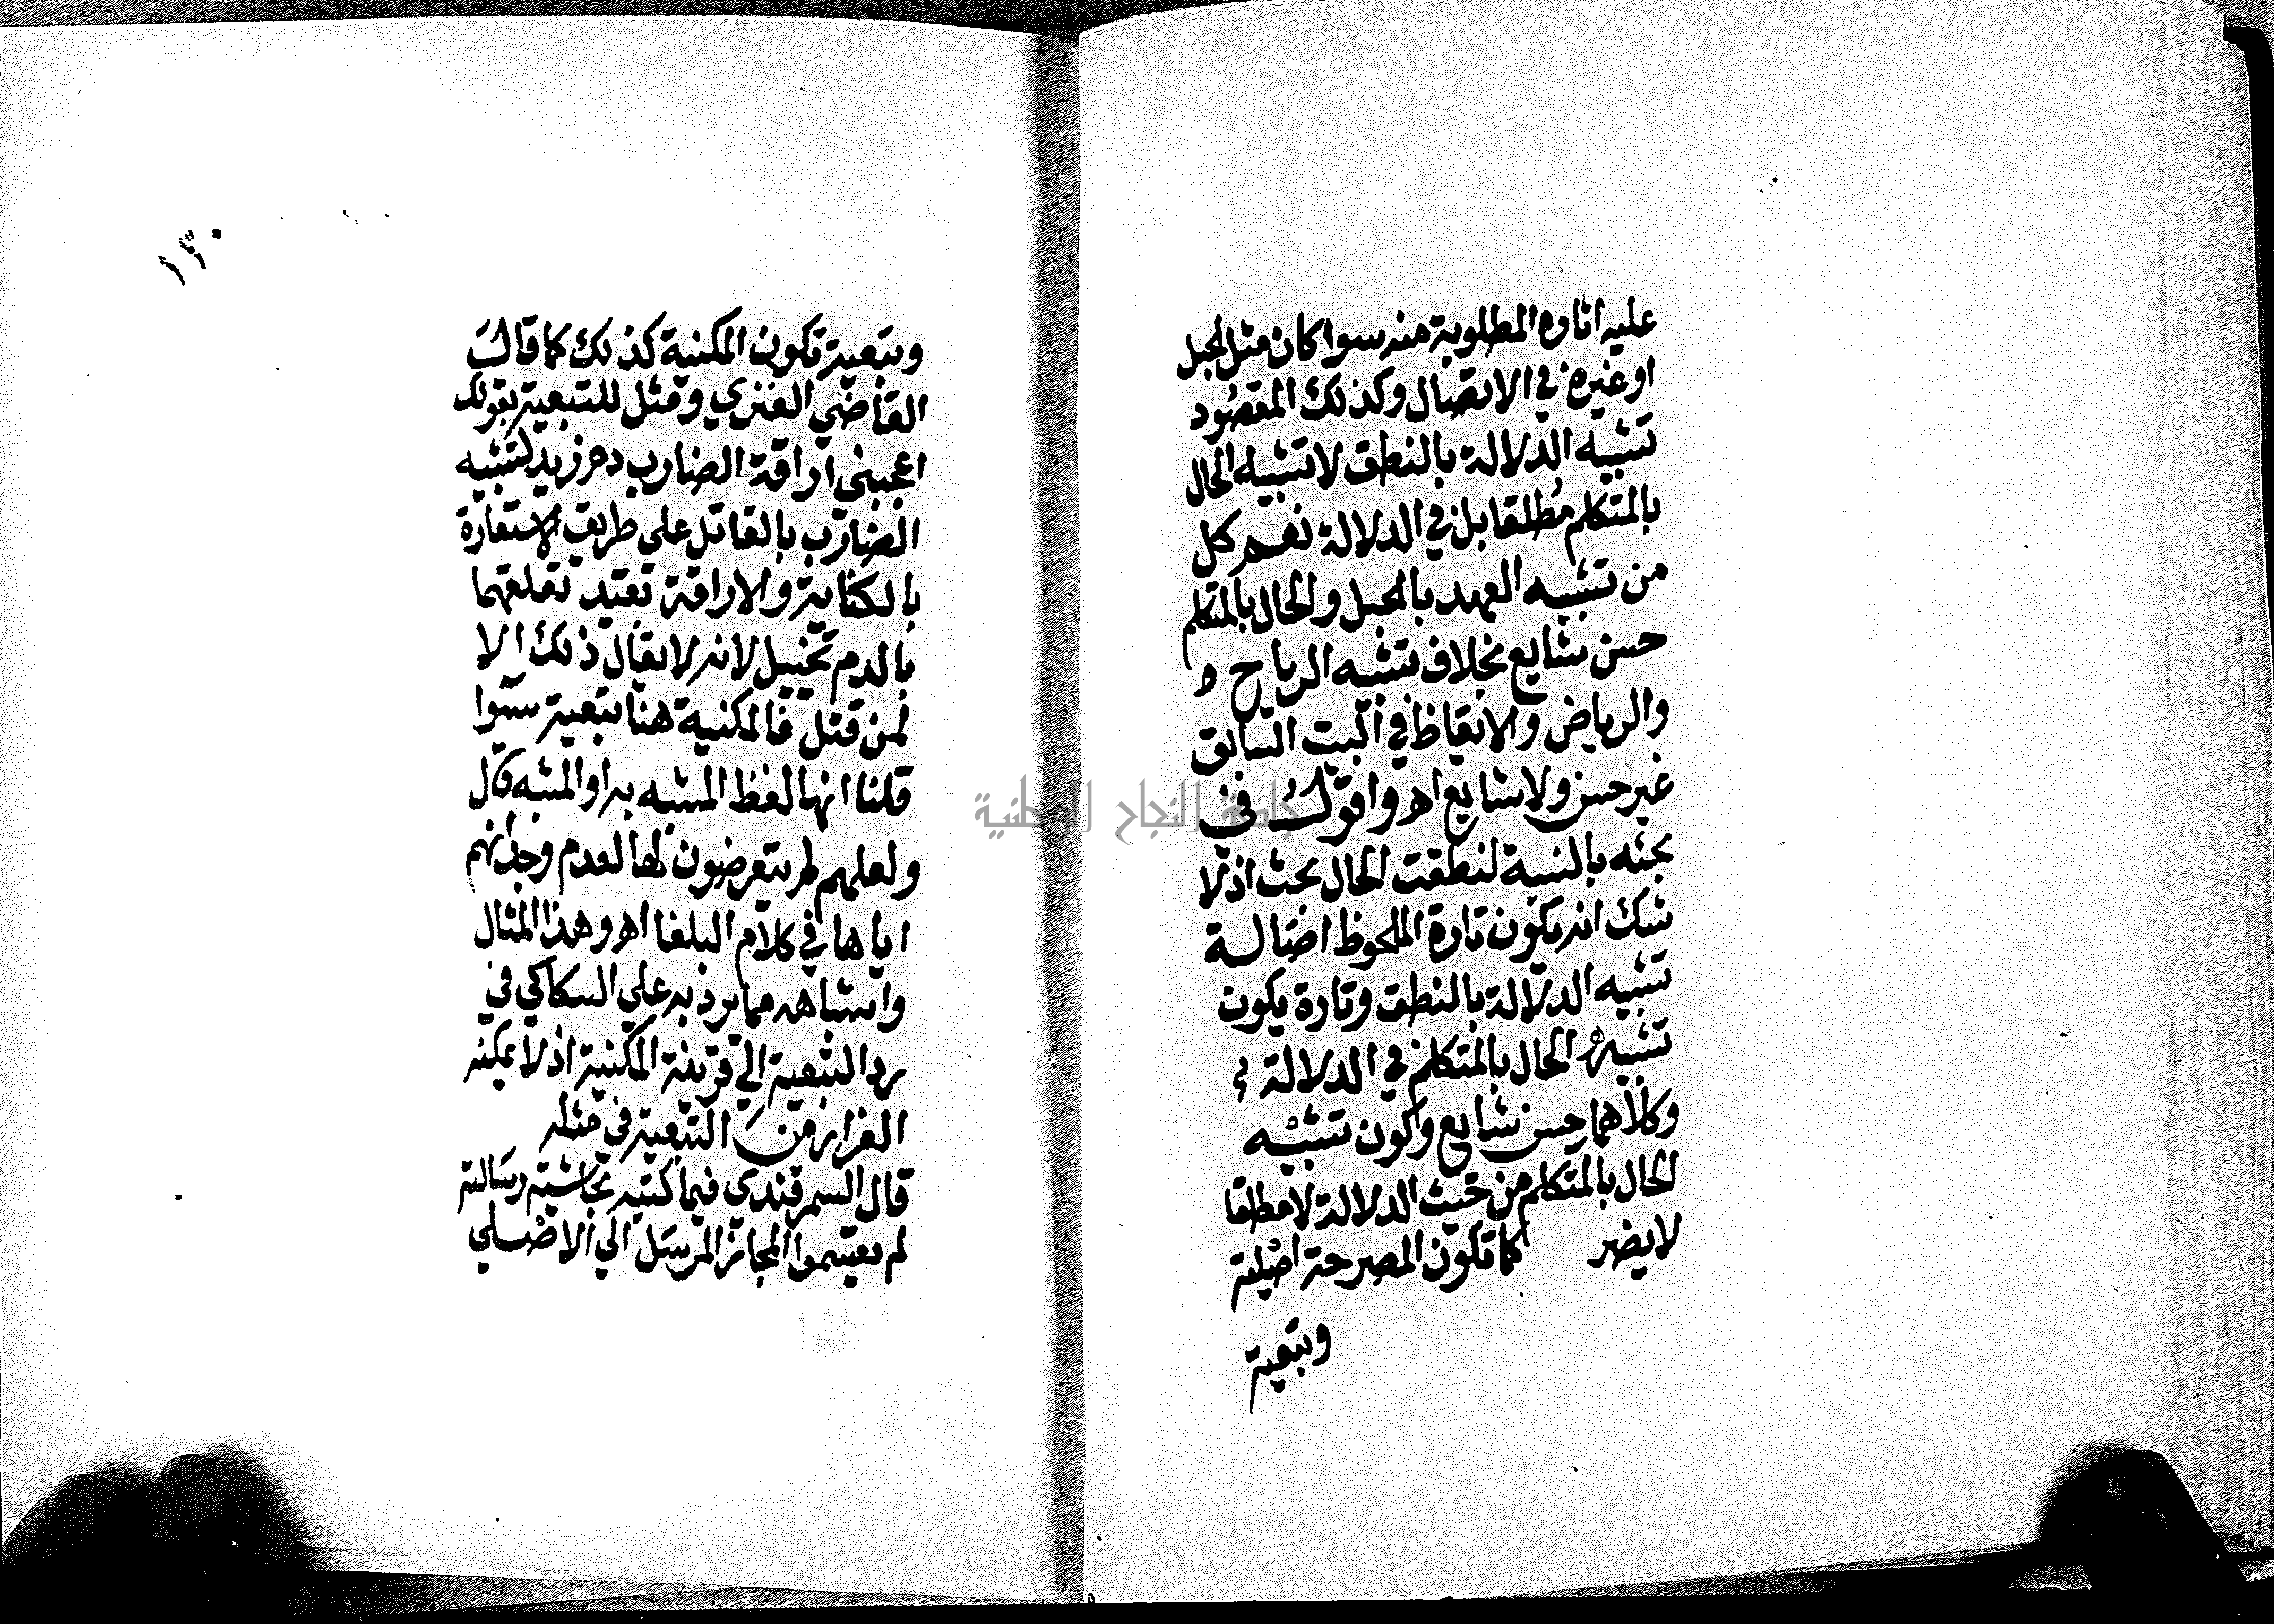 عليه اثاره المطلوبة منه سوا كان مثل الحبل
او غيره في الاتصال وكذلك المقصود
تشبيه الدلالة بالنطق لا تشبيه الحال
بالمتكلم مُطلقا بل في الدلالة نعم كل
من تشبيه العهد بالحبل والحال بالمتكلم
حسن شايع بخلاف تشبه الرياح
والرياض والايقاظ في البيت السابق
غير حسن ولا شايع اه واقول في
بحثه بالنسبة لنطقت الحال بحث اذ لا
شك انه يكون تارة الملحوظ اصالة
تشبيه الدلالة بالنطق وتارة يكون
تشبيه الحال بالمتكلم في الدلالة
وكلاهما حسن شايع وكون تشبيه
الحال بالمتكلم من حيث الدلالة لا مطلقا
لا يضر كما تكون المصرحة اصلية
وتبعية
١٣٠
وتبعية تكون المكنية كذلك كما قال
القاضي الغنزي ومثل للتبعية بقولك
اعجبني اراقة الضارب دم زيد لتشبيه
الضارب بالقاتل على طريق الاستعارة
بالكناية والاراقة تعلقها
بالدم تخييل لانه لا يقال ذلك الا
لمن قتل فالمكنية هنا تبعية سوا
قلنا انها لفظ المشبه به او المشبه قال
ولعلهم لم يتعرضون لها لعدم وجدانهم
اياها في كلام البلغا اه وهذا المثال
واشباهه مما يرد به على السكاكي في
رد التبعية الي قرينة المكنية اذ لا يمكنه
الفرار من التبعية في مثله
قال السمرقندي فيما كتبه بحاشية رسالته
لم يقسموا المجاز المرسل الي الاصلي
جامعة النجاح الوطنية